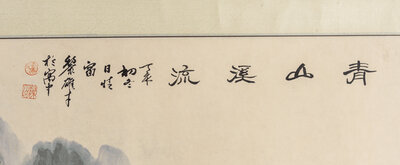 青山溪流
丁未
初冬
日於
雷
黎雄才
於甯中